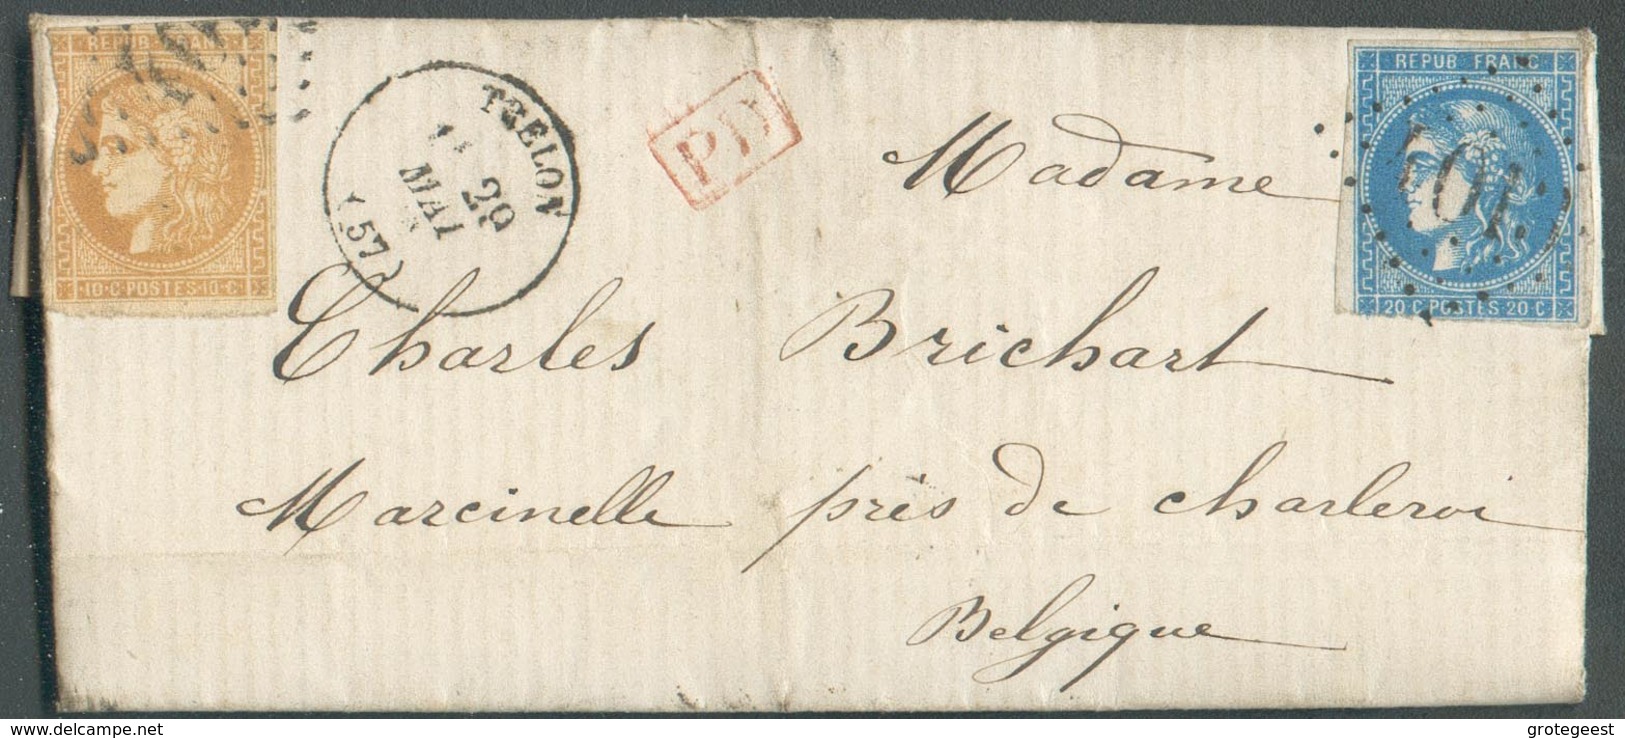 REPUB FRANC
10·C·POSTES·10·C
TRELON
29
MAI
(57)
PD
REPUB FRANC
20·C·POSTES·20·C
Madame
Charles Brichart
Marcinelle près de charleroi
Belgique
delcampe.net
grotegeest